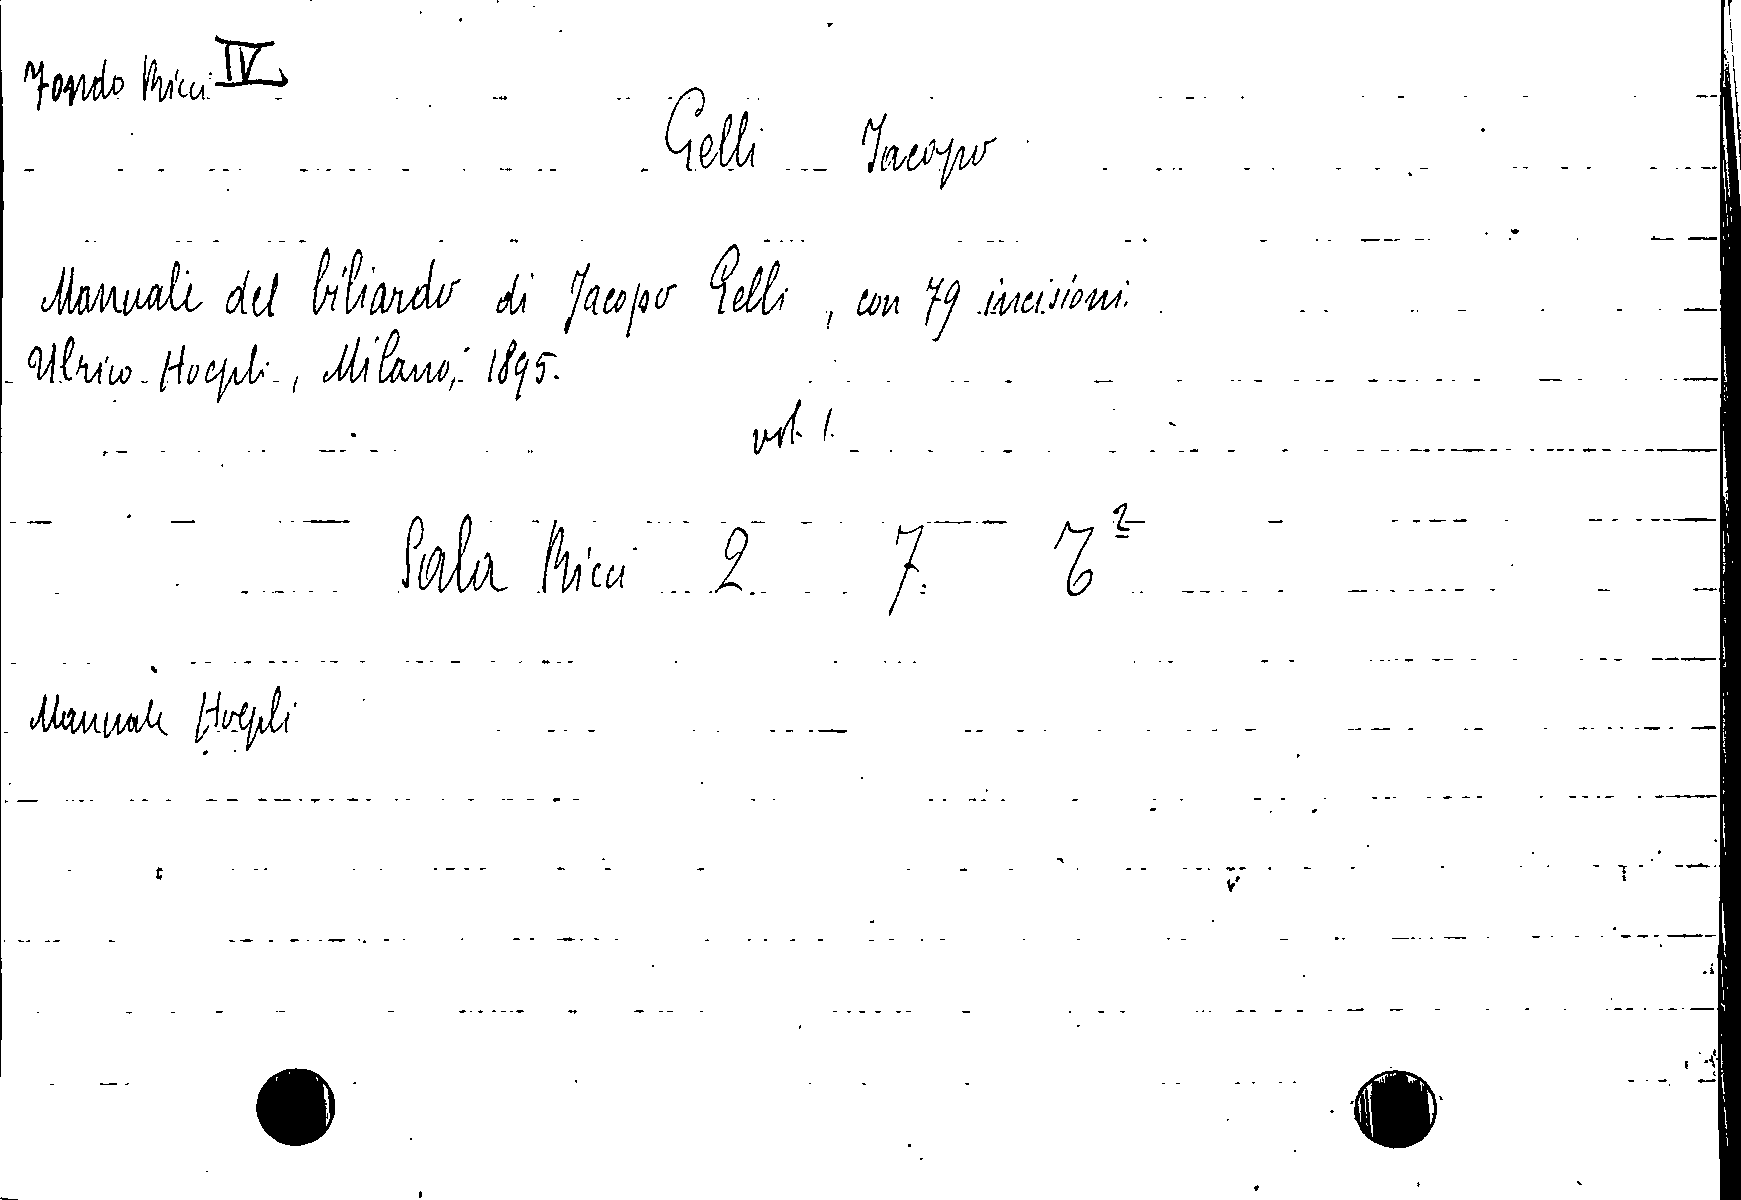 Fondo Ricci IV
Gelli Jacopo
Manuale del biliardo di Jacopo Gelli, con 79 incisioni.
Ulrico Hoepli, Milano, 1895.
vol. 1.
Sala Ricci 2 7. 6²
Manuale Hoepli